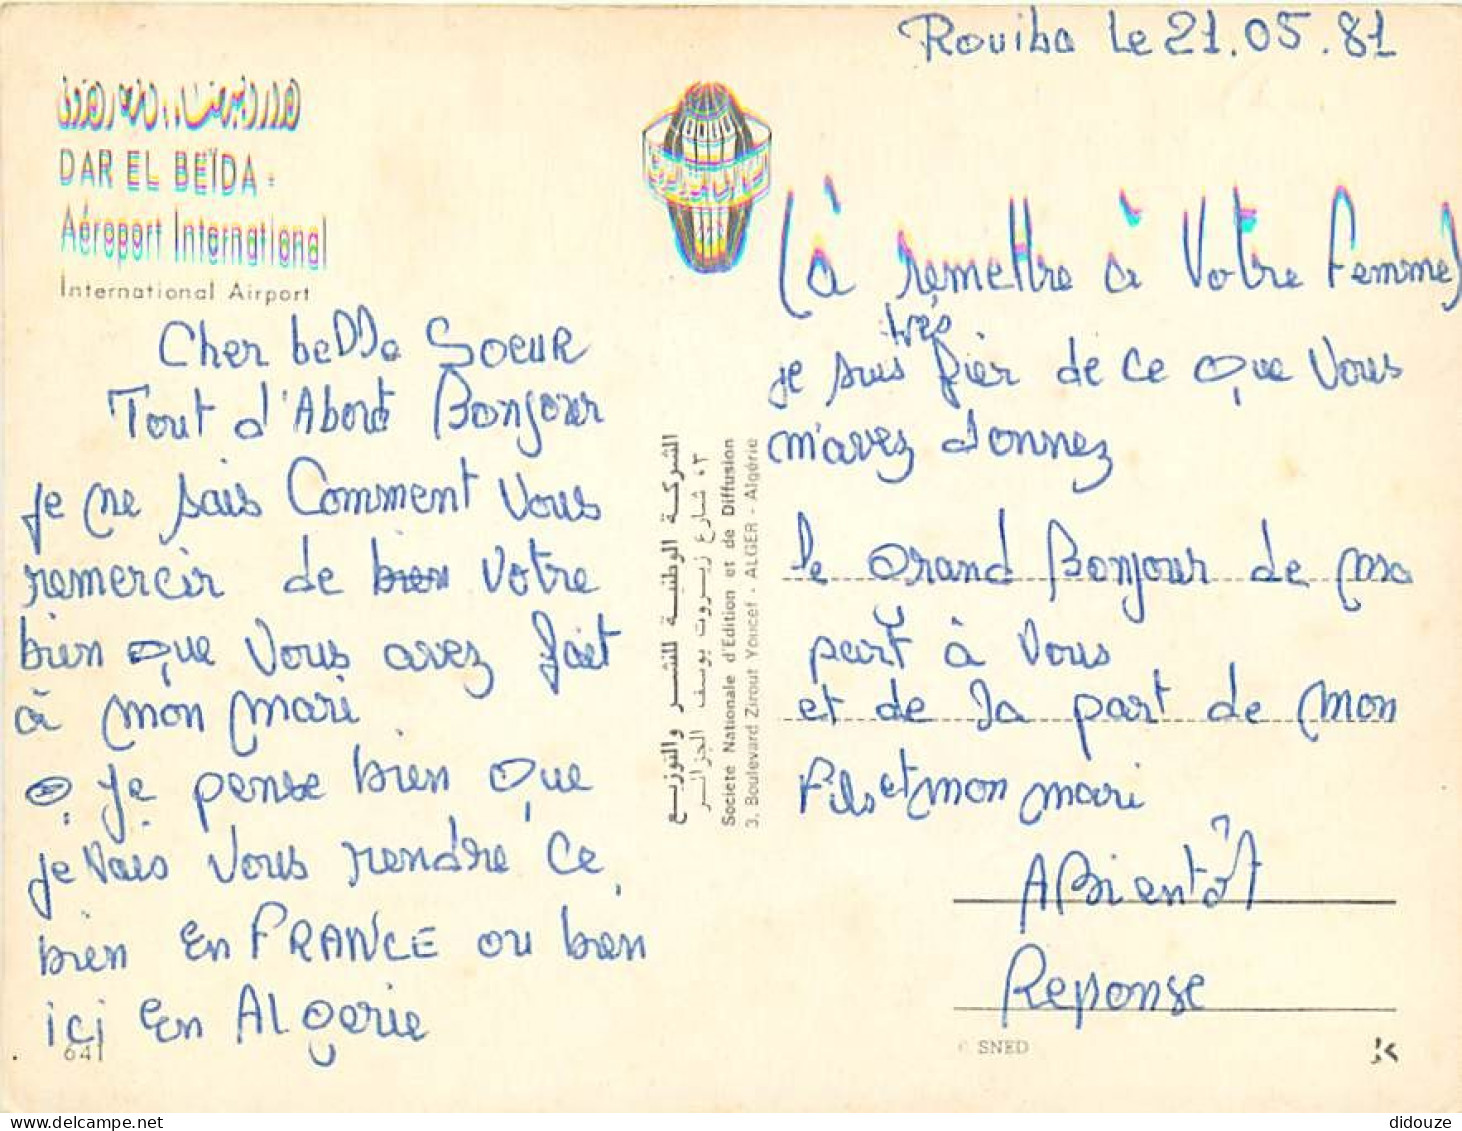 Rouiba le 21.05.81
DAR EL BEÏDA :
Aéroport International
International Airport
Cher belle Soeur
Tout d'Abord Bonjour
je ne sais Comment Vous
remercir de bien Votre
bien Que Vous avez fait
à mon mari
je pense bien Que
je vais Vous rendre Ce
bien En FRANCE ou bien
ici En Algerie
641
الشركة الوطنية للنشر والتوزيع
٠٣ شارع زيروت يوسف الجزائر
Societe Nationale d'Edition et de Diffusion
3, Boulevard Zirout Youcef - ALGER - Algérie
(à remettre à Votre Femme)
très
je suis fier de ce Que Vous
m'avez donnez
le Grand Bonjour de ma
part à Vous
et de la part de mon
Fils et mon mari
A Bientôt
Reponse
SNED
didouze